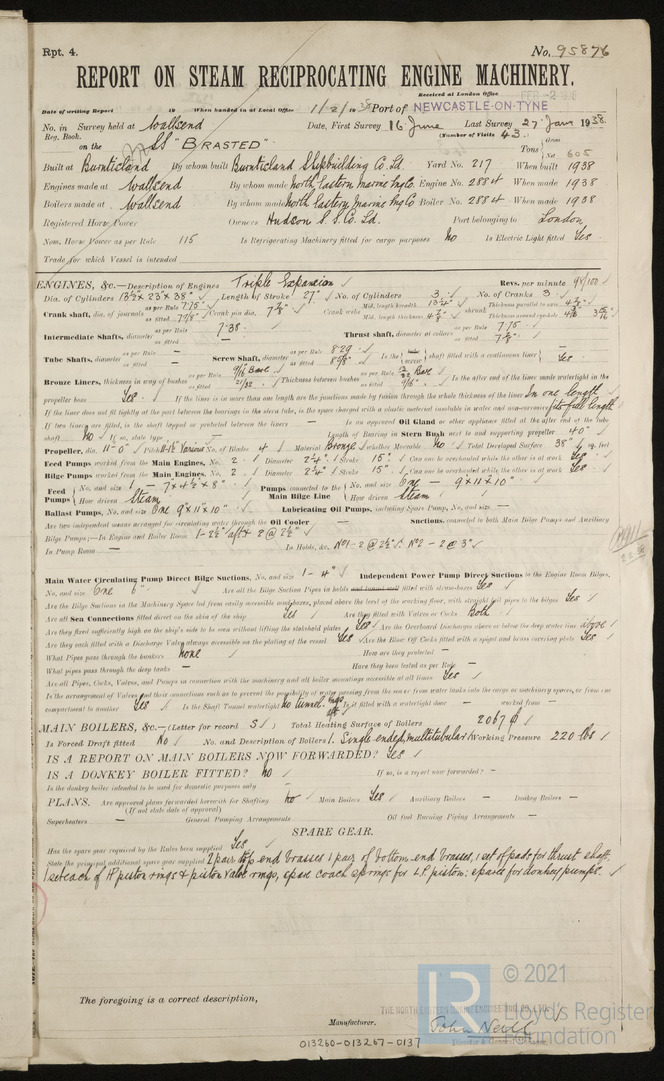 Rpt. 4.
No. 95876
REPORT ON STEAM RECIPROCATING ENGINE MACHINERY.
Received at London Office
Date of writing Report 19 When handed in at Local Office 1/2/1938 Port of NEWCASTLE-ON-TYNE
No. in Survey held at Wallsend Date, First Survey 16 June Last Survey 27 Jany 1938
Reg. Book. (Number of Visits 43.
on the SS "BRASTED" Tons Gross
Net 605
Built at Burntisland By whom built Burntisland Shipbuilding Co. Ld. Yard No. 217 When built 1938
Engines made at Wallsend By whom made North Eastern Marine Eng Co. Engine No. 2884 When made 1938
Boilers made at Wallsend By whom made North Eastern Marine Eng Co Boiler No. 2884 When made 1938
Registered Horse Power Owners Hudson S.S. Co. Ld. Port belonging to London
Nom. Horse Power as per Rule 115 Is Refrigerating Machinery fitted for cargo purposes No Is Electric Light fitted Yes
Trade for which Vessel is intended
ENGINES, &c.—Description of Engines Triple Expansion Revs. per minute 98/100
Dia. of Cylinders 13½" x 23" x 38" Length of Stroke 27" No. of Cylinders 3 No. of Cranks 3
Crank shaft, dia. of journals as per Rule 7.75" as fitted 7⅞" Crank pin dia. 7⅞" Crank webs Mid. length breadth 13¼" Mid. length thickness shrunk Thickness parallel to axis Thickness around eyehole
Intermediate Shafts, diameter as per Rule 7.38 as fitted — Thrust shaft, diameter at collars as per Rule 7.75 as fitted 7⅞"
Tube Shafts, diameter as per Rule — as fitted — Screw Shaft, diameter as per Rule 8.29 as fitted 8⅝" Is the shaft fitted with a continuous liner Yes
Bronze Liners, thickness in way of bushes as per Rule as fitted 21/32 Thickness between bushes as per Rule as fitted 9/16" Is the after end of the liner made watertight in the
propeller boss Yes If the liner is in more than one length are the junctions made by fusion through the whole thickness of the liner In one length
If the liner does not fit tightly at the part between the bearings in the stern tube, is the space charged with a plastic material insoluble in water and non-corrosive fits full length
If two liners are fitted, is the shaft lapped or protected between the liners — Is an approved Oil Gland or other appliance fitted at the after end of the tube
shaft No If so, state type — Length of Bearing in Stern Bush next to and supporting propeller 40"
Propeller, dia. 11'-0" Pitch 11-1½" Variable No. of Blades 4 Material Bronze whether Moveable No Total Developed Surface 38 sq. feet
Feed Pumps worked from the Main Engines, No. 2 Diameter 2¼" Stroke 15" Can one be overhauled while the other is at work Yes
Bilge Pumps worked from the Main Engines, No. 2 Diameter 2¼" Stroke 15" Can one be overhauled while the other is at work Yes
Feed Pumps No. and size 1 - 7" x 4½" x 8" How driven Steam Pumps connected to the Main Bilge Line No. and size One - 9" x 11" x 10" How driven Steam
Ballast Pumps, No. and size One 9" x 11" x 10" Lubricating Oil Pumps, including Spare Pump, No. and size —
Are two independent means arranged for circulating water through the Oil Cooler — Suctions, connected to both Main Bilge Pumps and Auxiliary
Bilge Pumps;—In Engine and Boiler Room 1-2½" aft & 2 @ 2½"
In Pump Room — In Holds, &c. No1 - 2 @ 2½". No2 - 2 @ 3"
Main Water Circulating Pump Direct Bilge Suctions, No. and size 1 - 4" Independent Power Pump Direct Suctions to the Engine Room Bilges,
No. and size One 6" Are all the Bilge Suction Pipes in holds and tunnel well fitted with strum-boxes Yes
Are the Bilge Suctions in the Machinery Space led from easily accessible mud-boxes, placed above the level of the working floor, with straight tail pipes to the bilges Yes
Are all Sea Connections fitted direct on the skin of the ship Yes Are they fitted with Valves or Cocks Both
Are they fixed sufficiently high on the ship's side to be seen without lifting the stokehold plates Yes Are the Overboard Discharges above or below the deep water line above
Are they each fitted with a Discharge Valve always accessible on the plating of the vessel Yes Are the Blow Off Cocks fitted with a spigot and brass covering plate Yes
What Pipes pass through the bunkers None How are they protected —
What pipes pass through the deep tanks — Have they been tested as per Rule —
Are all Pipes, Cocks, Valves, and Pumps in connection with the machinery and all boiler mountings accessible at all times Yes
Is the arrangement of Valves and their connections such as to prevent the possibility of water passing from the sea or from water tanks into the cargo or machinery spaces, or from one
compartment to another Yes Is the Shaft Tunnel watertight No tunnel. Machy aft Is it fitted with a watertight door — worked from —
MAIN BOILERS, &c.—(Letter for record S) Total Heating Surface of Boilers 2067
Is Forced Draft fitted No No. and Description of Boilers 1. Single ended multitubular Working Pressure 220 lbs
IS A REPORT ON MAIN BOILERS NOW FORWARDED? Yes
IS A DONKEY BOILER FITTED? No If so, is a report now forwarded? —
Is the donkey boiler intended to be used for domestic purposes only —
PLANS. Are approved plans forwarded herewith for Shafting No Main Boilers Yes Auxiliary Boilers — Donkey Boilers —
(If not state date of approval)
Superheaters — General Pumping Arrangements Oil fuel Burning Piping Arrangements —
SPARE GEAR.
Has the spare gear required by the Rules been supplied Yes
State the principal additional spare gear supplied 2 pair top end brasses 1 pair of bottom end brasses, 1 set of pads for thrust shaft.
1 set each of HP piston rings & piston valve rings, spare coach springs for L.P. piston: spares for donkey pumps.
The foregoing is a correct description,
THE NORTH EASTERN MARINE ENGINEERING CO. LTD.
Manufacturer. John Neill
013260-013267-0137
LR © 2021
Lloyd's Register
Foundation